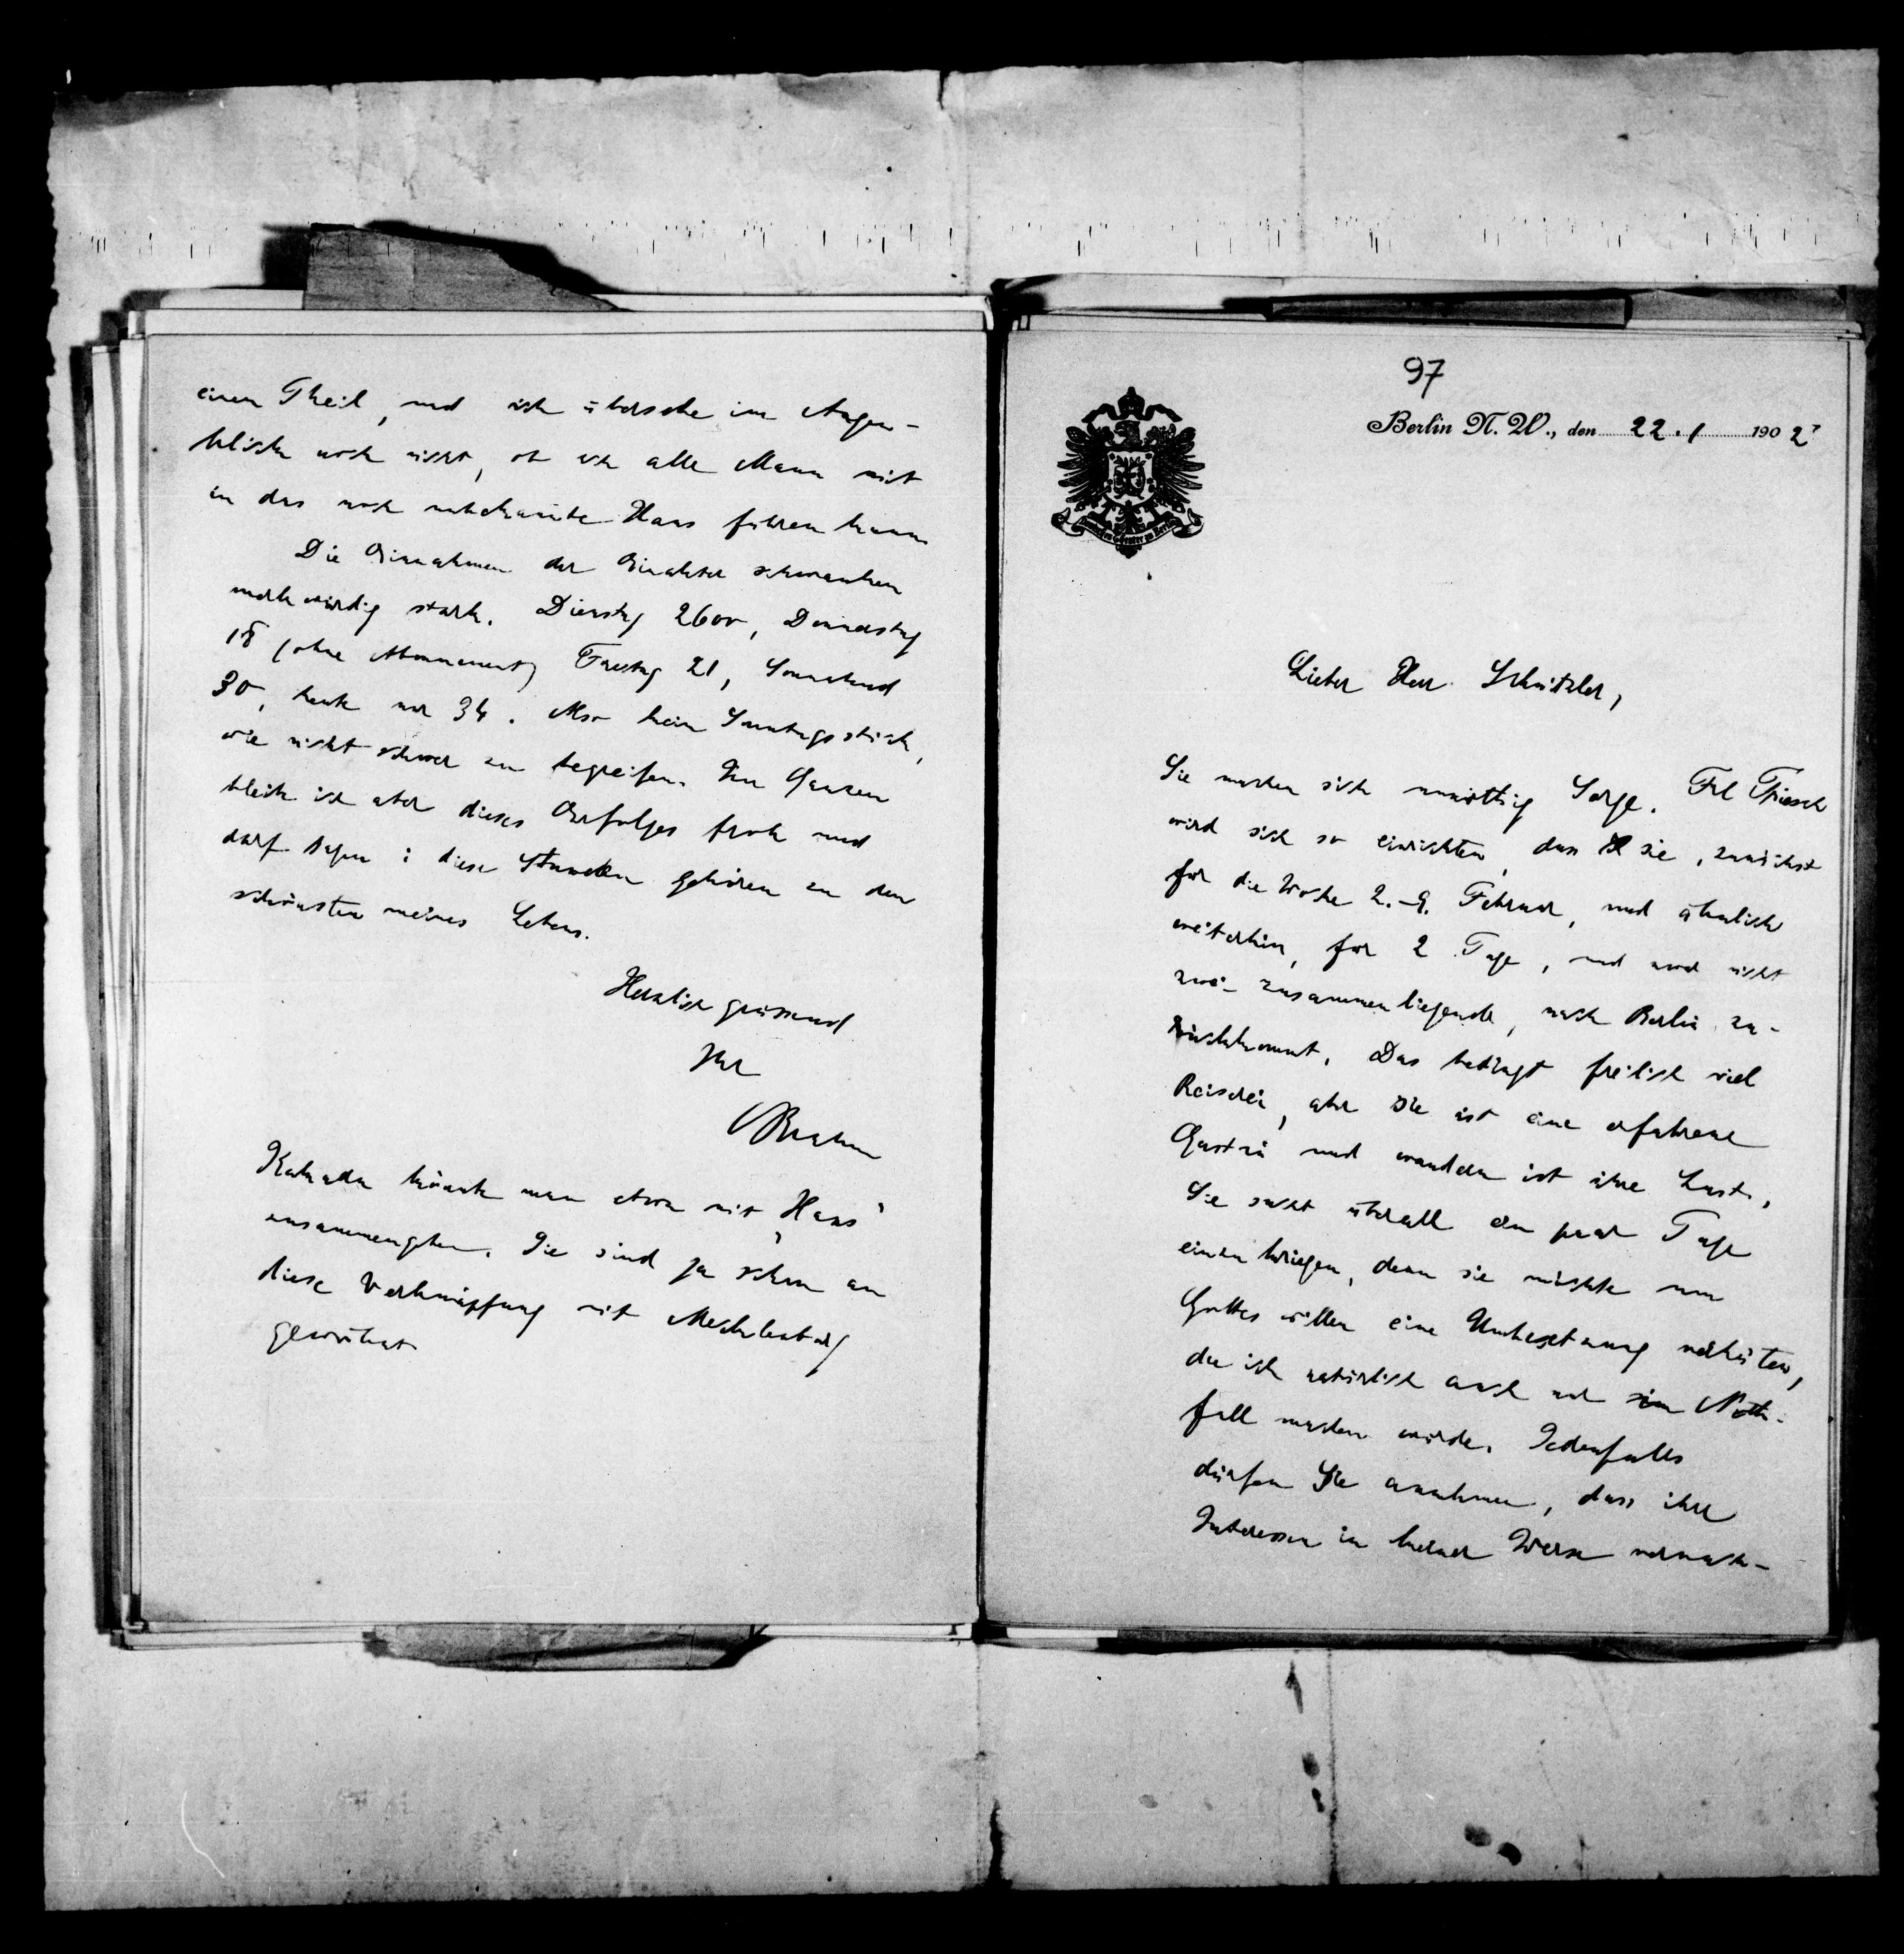 einen Theil, und ich übersehe im Augen-
blick noch nicht, ob ich alle Mann mit
in das noch unbekannte Haus führen kann.
Die Einnahmen der Einakter schwanken
merkwürdig stark. Dienstag 2600, Donnerstag
18 (ohne Abonnement) Freitag 21, Sonnabend
30, heute nur 34. Also kein Sonntagsstück,
wie nicht schwer zu begreifen. Im Ganzen
bleib ich aber dieses Erfolges froh und
darf sagen: diese Stunden gehören zu den
schönsten meines Lebens.
Herzlich grüssend
Ihr
OBrahm
Kakadu könnte man etwa mit „Haus“
zusammengeben. Sie sind ja schon an
diese Verknüpfung mit Mecklenburg
gewöhnt
97
Berlin N. W., den 22.1 1902
Deutsches Theater zu Berlin
Lieber Herr Schnitzler,
Sie machen sich unnöthig Sorge. Frl Triesch
wird sich so einrichten, dass sie, zunächst
für die Woche 2.–9. Februar, und ähnlich
weiterhin, für 2 Tage, und zwar nicht
zwei zusammenliegende, nach Berlin zu-
rückkommt. Das bedingt freilich viel
Reiserei, aber sie ist eine erfahrene
Gastin und wandern ist ihre Lust.
Sie sucht überall ein paar Tage
einzukriegen, denn sie möchte um
Gottes willen eine Umbesetzung verhüten,
die ich natürlich auch nur im Noth-
fall machen würde. Jedenfalls
dürfen Sie annehmen, dass ihre
Interessen in keiner Weise vernach-